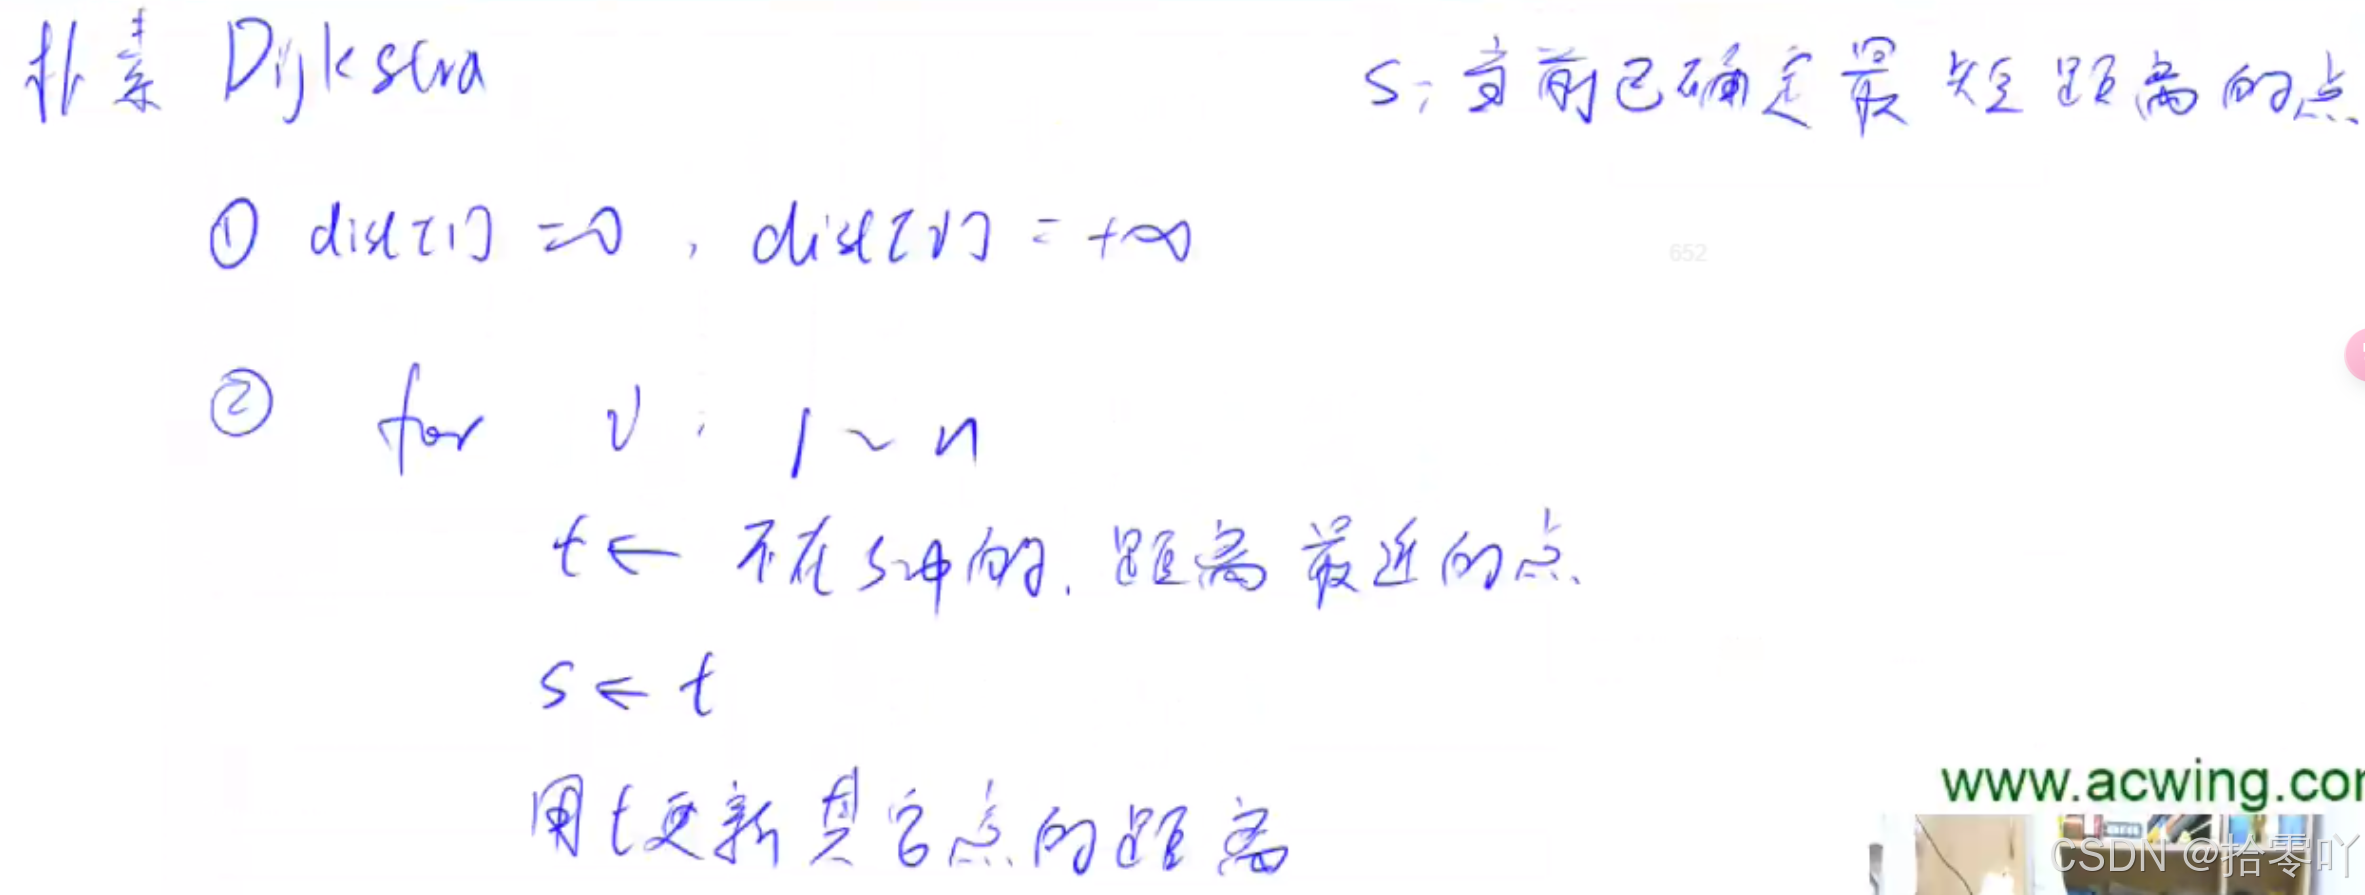 朴素 Dijkstra
s: 当前已确定最短距离的点
① dist[1] = 0, dist[i] = +∞
652
② for i: 1 ~ n
t ← 不在s中的、距离最近的点
s ← t
用t更新其它点的距离
www.acwing.co
CSDN @拾零吖